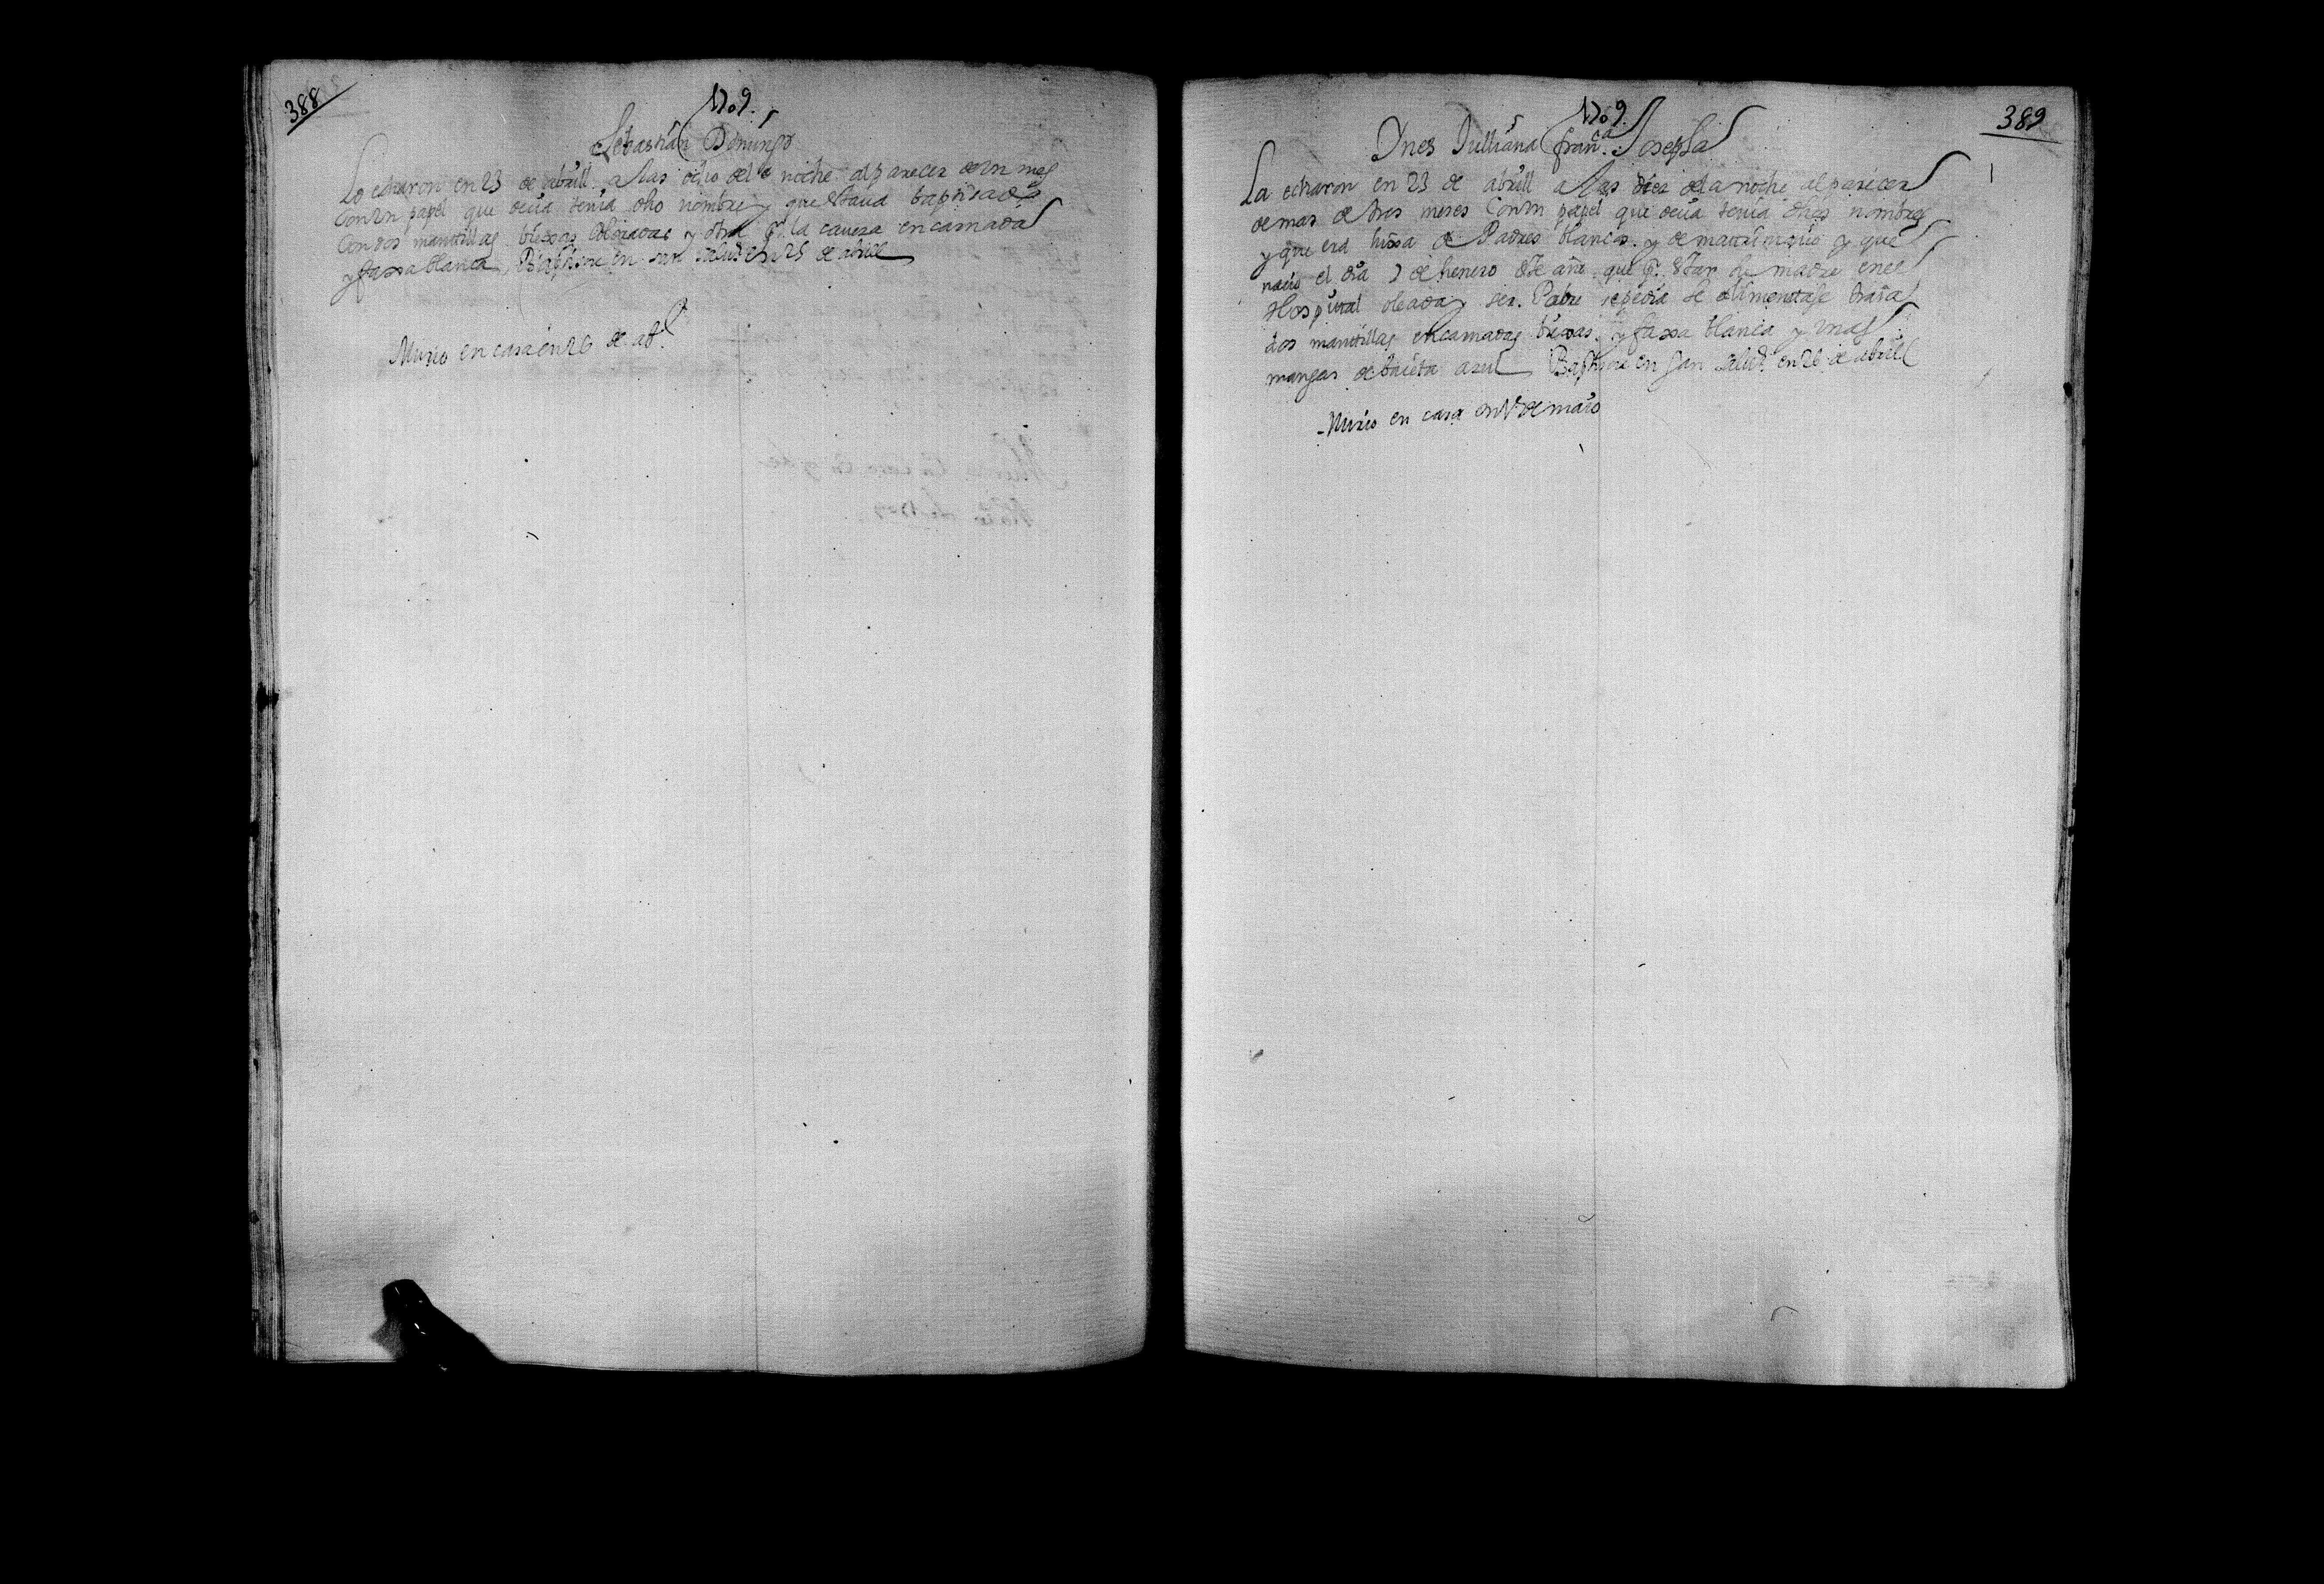 388
1709.
Sebastián Domingo
Lo echaron en 23 de abrill a las ocho de la noche al parecer de un mes
Con un papel que decia tenia dho nombre y que estava baptisado
Con dos mantillas biexas coloradas y otra pa. la caveza encarnada
y faxa blanca Baptisose en san Salvdor. en 25 de abrill
Murio en casa en 26 de ab.l
389
1709.
Ynes Julliana fran.ca Josepha
La echaron en 23 de abrill a las diez de la noche al parecer
de mas de tres meses Con un papel que decia tenia dhos nombres
y que era hixa de Padres blancos y de matrimonio y que
nacio el dia 7 de henero deste año que pr. estar su madre en el
Hospital oleada y ser Pobre se pedia se alimentase traia
dos mantillas encarnadas biexas y faxa blanca y unas
mangas de baieta azul Baptisose en san Salvdor. en 26 de abrill
Murio en casa en de maio